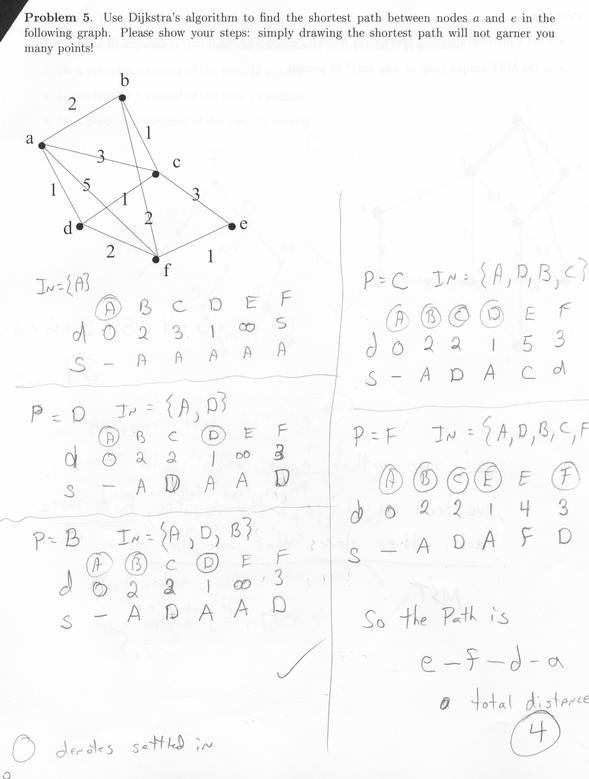 Problem 5. Use Dijkstra's algorithm to find the shortest path between nodes a and e in the
following graph. Please show your steps: simply drawing the shortest path will not garner you
many points!
b
2
1
a
3
c
1
5
1
3
2
d
e
2
1
f
In={A}
A B C D E F
d 0 2 3 1 ∞ 5
S - A A A A A
P=D In={A,D}
A B C D E F
d 0 2 2 1 ∞ 3
S - A D A A D
P=B In={A,D,B}
A B C D E F
d 0 2 2 1 ∞ 3
S - A D A A D
O denotes settled in
P=C In={A,D,B,C}
A B C D E F
d 0 2 2 1 5 3
S - A D A C d
P=F In={A,D,B,C,F
A B C E E F
d 0 2 2 1 4 3
S - A D A F D
So the Path is
e-f-d-a
a total distance
4